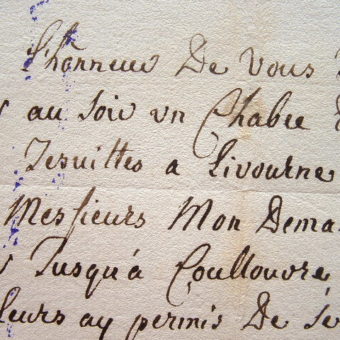 L'honneur De Vous
au soir un Chabec
Jesuittes a Livourne
Messieurs Mon Dema
Jusqu'á Coullouvre
leurs ay permis De se